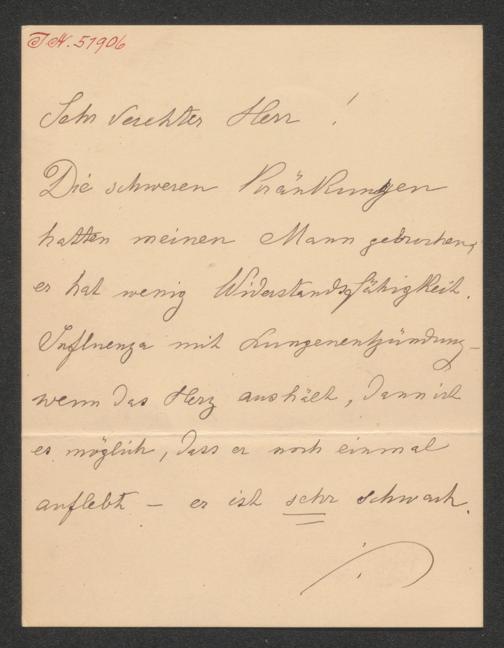 I. N. 51906
Sehr Verehrter Herr !
Die schweren Kränkungen
hatten meinen Mann gebrochen,
er hat wenig Widerstandsfähigkeit.
Influenza mit Lungenentzündung –
wenn das Herz aushält, dann ist
es möglich, dass er noch einmal
auflebt – er ist sehr schwach.